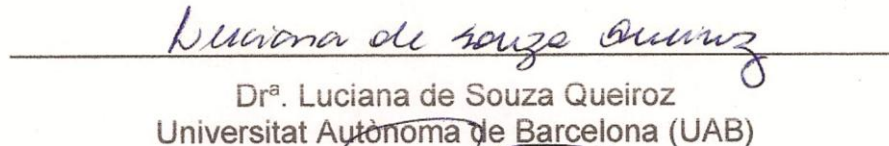 Luciana de Souza Queiroz
Drª. Luciana de Souza Queiroz
Universitat Autònoma de Barcelona (UAB)